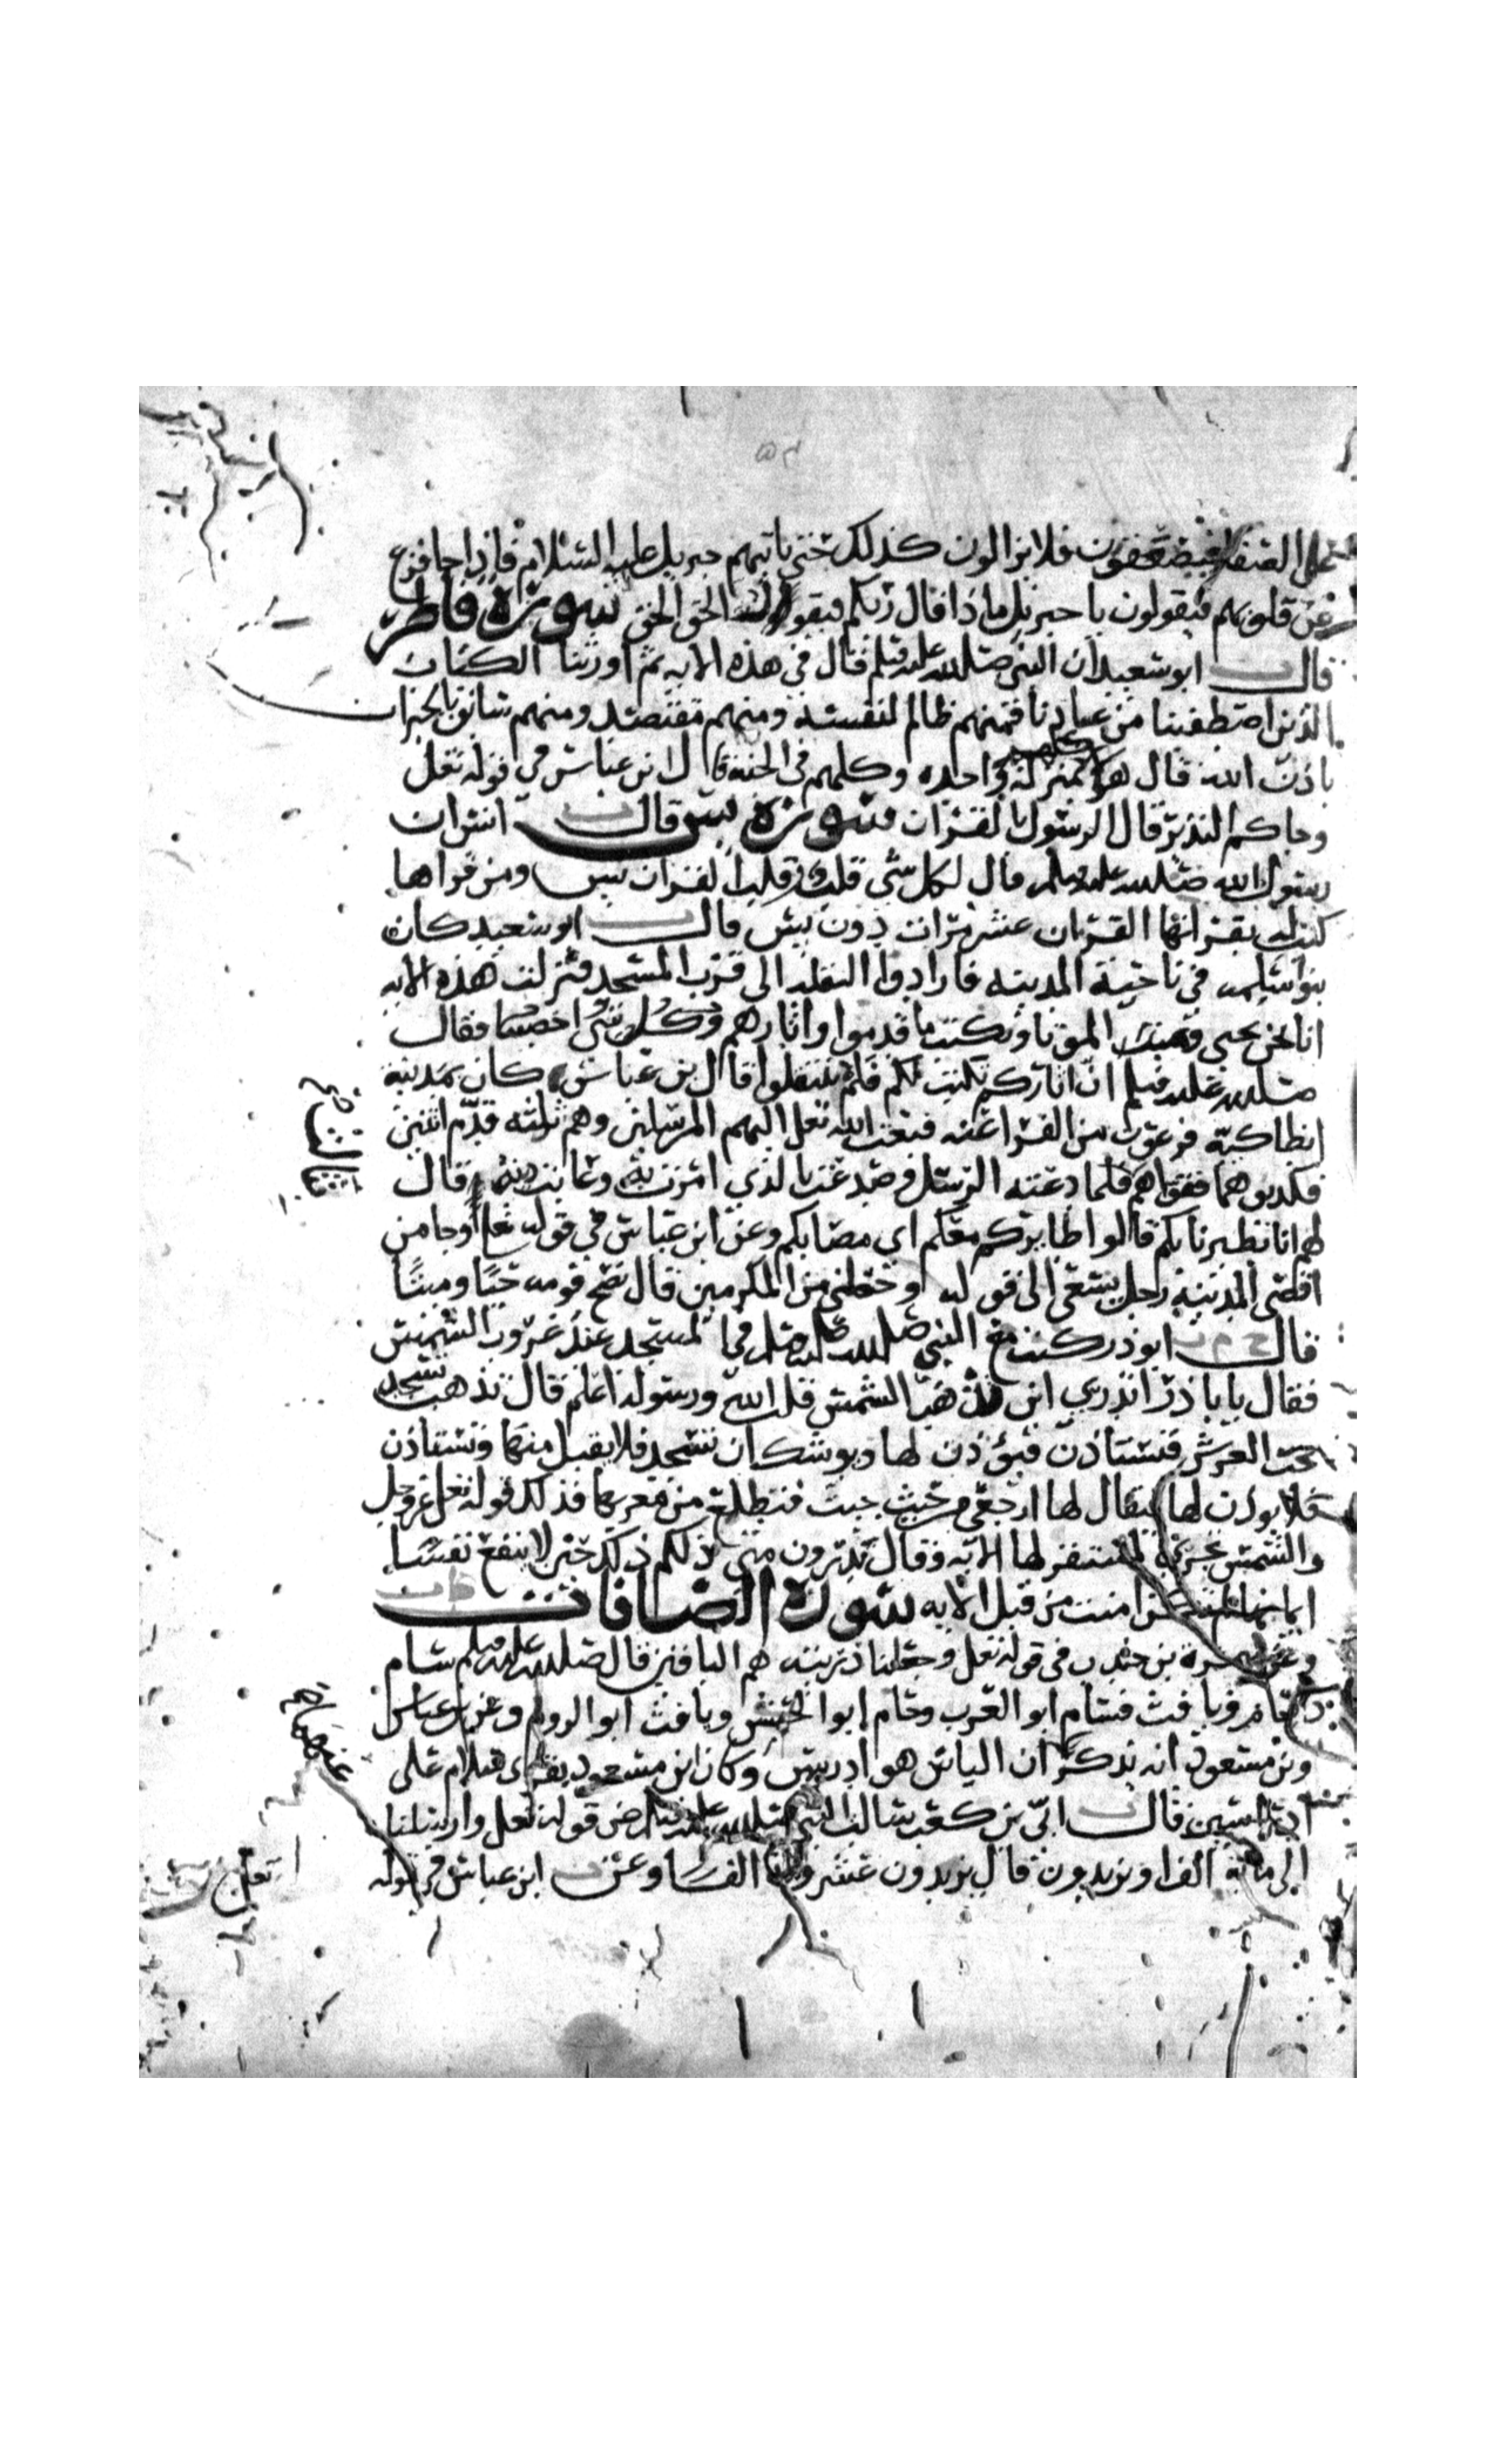 على الصفا فيصعقون فلا يزالون كذلك حتى ياتيهم جبريل عليه السلام فاذا جا فزع
عن قلوبهم فيقولون يا جبريل ماذا قال ربكم فيقول الحق الحق سورة فاطر
قال ابو سعيد ان النبي صلى الله عليه وسلم قال في هذه الايه ثم اورثنا الكتاب
الذين اصطفينا من عبادنا فمنهم ظالم لنفسه ومنهم مقتصد ومنهم سابق بالخيرات
باذن الله قال هولا بمنزلة واحده وكلهم في الجنه قال ابن عباس في قوله تعلى
وجاكم النذير قال الرسول بالقران سورة يس قال انس ان
رسول الله صلى الله عليه وسلم قال لكل شي قلب وقلب القران يس ومن قراها
كتب له بقراتها القران عشر مرات دون يس قال ابو سعيد كان
بنو سلمه في ناحية المدينه فارادوا النقله الى قرب المسجد فنزلت هذه الايه
انا نحن نحيي الموتا ونكتب ما قدموا واثارهم وكل شي احصينا فقال
صلى الله عليه وسلم ان اثاركم تكتب لكم فلم ينتقلوا قال بن عباس كان بمدينة
انطاكية فرعون من الفراعنه فبعث الله تعلى اليهم المرسلين وهم ثلثه قدم اثنين
فكذبوهما فقواهم فلما دعته الرسل وصدعت بالذي امرت به وعابت دينه قال
لهم انا تطيرنا بكم قالوا طايركم معكم اي مصابكم وعن ابن عباس في قوله تعلى وجا من
اقصى المدينه رجل يسعى الى قوله وجعلني من المكرمين قال نصح قومه حيا وميتا
قال ابو ذر كنت مع النبي صلى الله عليه وسلم في المسجد عند غروب الشمس
فقال يابا ذر اتدري اين تذهب الشمس قلت الله ورسوله اعلم قال تذهب تسجد
تحت العرش فتستاذن فيؤذن لها ويوشك ان تسجد فلا يقبل منها وتستاذن
فلا يوذن لها فيقال لها ارجعي من حيث جيت فتطلع من مغربها فذلك قوله تعلى عز وجل
والشمس تجري لمستقر لها الايه وقال تدرون متى ذلكم ذلك حين لا ينفع نفسا
ايمانها لم تكن امنت من قبل الايه سورة الصافات
وعن سمرة بن جندب في قوله تعلى وجعلنا ذريته هم الباقين قال صلى الله عليه وسلم سام
وحام ويافث فسام ابو العرب وحام ابو الحبش ويافث ابو الروم وعن بن عباس
وبن مسعود انه يذكر ان الياس هو ادريس وكان بن مسعود يقرا سلام على
ادراسين قال ابي بن كعب سالت النبي صلى الله عليه وسلم عن قوله تعلى وارسلنا
الى مائة الف او يزيدون قال يزيدون عشرون الفا وعن ابن عباس في قوله
تعلى